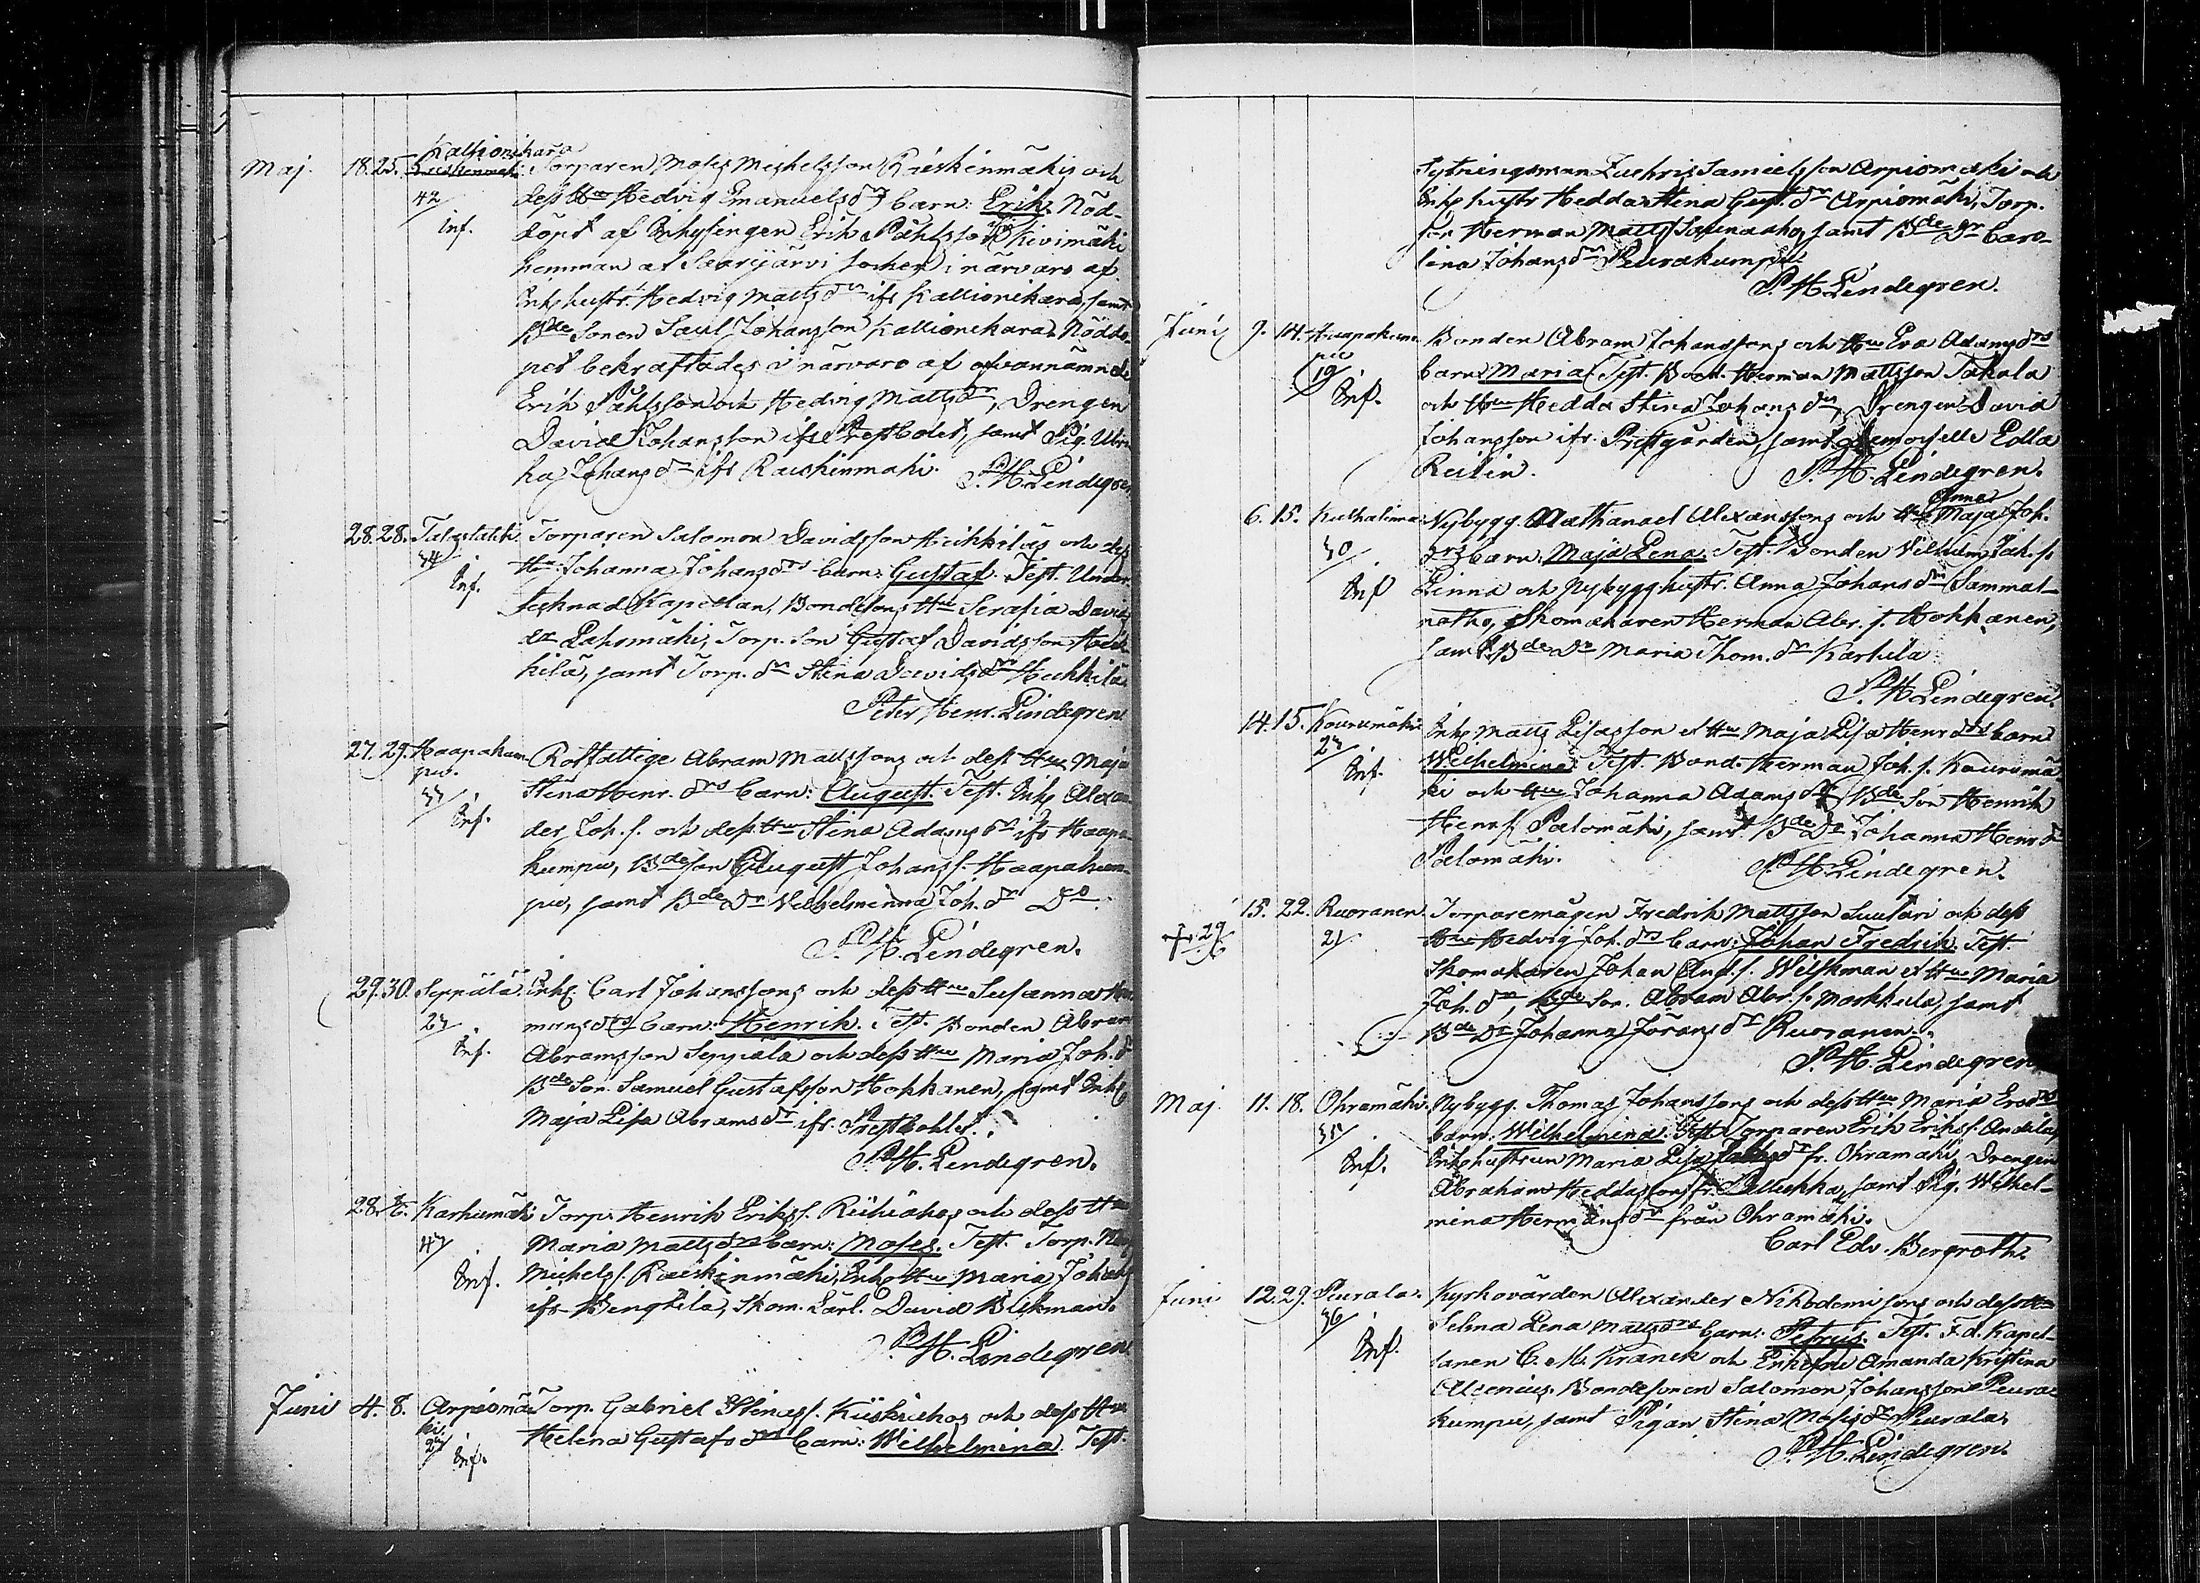 Maj. 18. 25. Kallionikara
Torparen Moses Michelsson Räiskinmäkis och
42 dess Hu Hedvig Emanuelsdrs barn: Erik. Nöd-
Inf. döpt af Inhysingen Erik Påhlsson Kivimäki
hemman af Saarijärvi socken i närvaro af
Inhs hustr. Hedvig Mattsdr ifr. Kallionikara, samt
Bde Sonen Saul Johansson Kallionikara. Nöddo-
pet bekräftades i närvaro af ofvannämnde
Erik Påhlsson och Hedvig Mattsdr, Drengen
David Johansson ifr. Prestbolet, samt Pig. Ulri-
ka Johansdr ifr. Raiskinmäki. P. H. Lindegren
28. 28. Torparen Salomon Davidsson Heikkiläs och dess
Hu Johanna Johansdrs barn: Gustaf. Test. Under-
Inf. tecknad Kapellan, Bondesons Hu Serafia Davids
dr Lahomäki, Torp. Son Gustaf Davidsson Heik-
kilä, samt Torp. dr Stina Davidsdr Heikkilä.
Peter Henr. Lindegren
27. 29. Haapakum- Rotfattige Abram Mattssons och dess Hu Maja
pu. Stina Henr. drs barn: August. Test. Inhs Alexan-
Inf. der Joh. s. och dess Hu Stina Adamsdr ifr. Haapa-
kumpu, Bde son August Johans s. Haapakum-
pu, samt Bde Dr Vilhelmina Joh. dr Do.
P. H. Lindegren.
29. 30. Seppälä. Inhs. Carl Johanssons och dess Hu Susanna Her-
27 mansdrs barn: Henrik. Test. Bonden Abram
Inf. Abramsson Seppälä och dess Hu Maria Joh. dr
Bde Son. Samuel Gustafsson Hokkanen, samt Inhs
Maja Lisa Abramsdr ifr. Prestbohlet.
P. H. Lindegren.
28. Karhumäki Torp. Henrik Eriks s. Riihiahos och dess Hu
47 Maria Mattsdrs barn: Moses. Test. Torp.
Inf. Michels s. Raiskinmäki, Inhs Hu Maria Johans
ifr. Bengtilä, Skom. Lärl. David Blikman.
P. H. Lindegren
Juni 4. 8. Arpiomä- Torp. Gabriel Stinas s. Kiiskiahos och dess Hu
ki. Helena Gustafsdrs barn: Wilhelmina. Test.
Inf.
Fytningsman Zachris Samuelsson Arpiomäki och
Inhs hustr Hedda Stina Gust. dr Arpiomäki, Torp.
Herman Matts s. Saunaaho, samt Bde Dr Caro-
lina Johansdr Peurakumpu.
P. H. Lindegren.
Juni 9. 14. Haapakum- Bonden Abram Johanssons och Hu Eva Adamsdrs
pu barn: Maria. Test. Bond. Herman Mattsson Takala
19 och Hu Hedda Stina Johansdr, Drengen David
Inf. Johansson ifr. Prestgården, samt Demoiselle Edla
Reilin. P. H. Lindegren.
6. 15. Nybygg. Nathanael Alexanssons och Hu Anna Maja Joh.
30 drs barn: Maja Lena. Test. Bonden Vilhelm Jak. s.
Inf Linna och Nybygghustr. Anna Johansdr Sammal-
natho, Skomakaren Herman Abr. s. Hokkanen,
samt Bde Dr Maria Thom. dr Karhila
P. H. Lindegren.
14. 15. Kourumäki Inhs Matts Lisasson et Hu Maja Lisa Henr drs barn
27 Wilhelmina. Test. Bond. Herman Joh. s. Kourumä-
Inf. ki och Hu Johanna Adamsdr, Bde Son Henrik
Henr s. Palomäki, samt Bde Dr Johanna Henr dr
Palomäki. P. H. Lindegren.
15. 22. Ruoranen. Torparemågen Fredrik Mattsson Suutari och dess
21 Hu Hedvig Joh. drs barn: Johan Fredrik. Test.
Skomakaren Johan And. s. Weikman et Hu Maria
Joh. dr, Bde Son. Abram Abr. s. Markkula, samt
Bde Dr Johanna Göransdr Ruoranen.
P. H. Lindegren
Maj. 11. 18. Ohramäki. Nybygg. Thomas Johanssons och dess Hu Maria
barn: Wilhelmina. Test. Torparen Erik Eriks s.
Inf. Inhs hustrun Maria Lisa fr. Ohramäki, Drengen
Abraham Heddasson fr. samt Pig. Wilhel-
mina Hermansdr från Ohramäki.
Carl Edv. Bergroth.
Juni 12. 29. Peurala. Kyrkovärden Alexander Nikodemissons och dess Hu
36 Selma Lena Mattsdrs barn: Petrus. Test. F. d. Kapel-
Inf. lanen C. M. Kranck och Enkefru Amanda Kristina
Alcenius, Bondesonen Salomon Johansson Peura-
kumpu, samt Pigan Stina Mosisdr Peurala.
P. H. Lindegren.